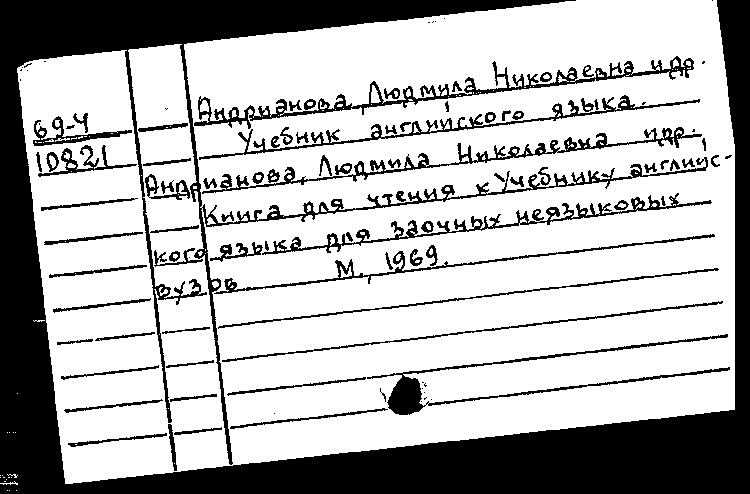 Андрианова, Людмила Николаевна и др.
69-4
10821
Учебник английского языка.
Андрианова, Людмила Николаевна и др.
Книга для чтения к Учебнику англий-
кого языка для заочных неязыковых
вузов. М., 1969.